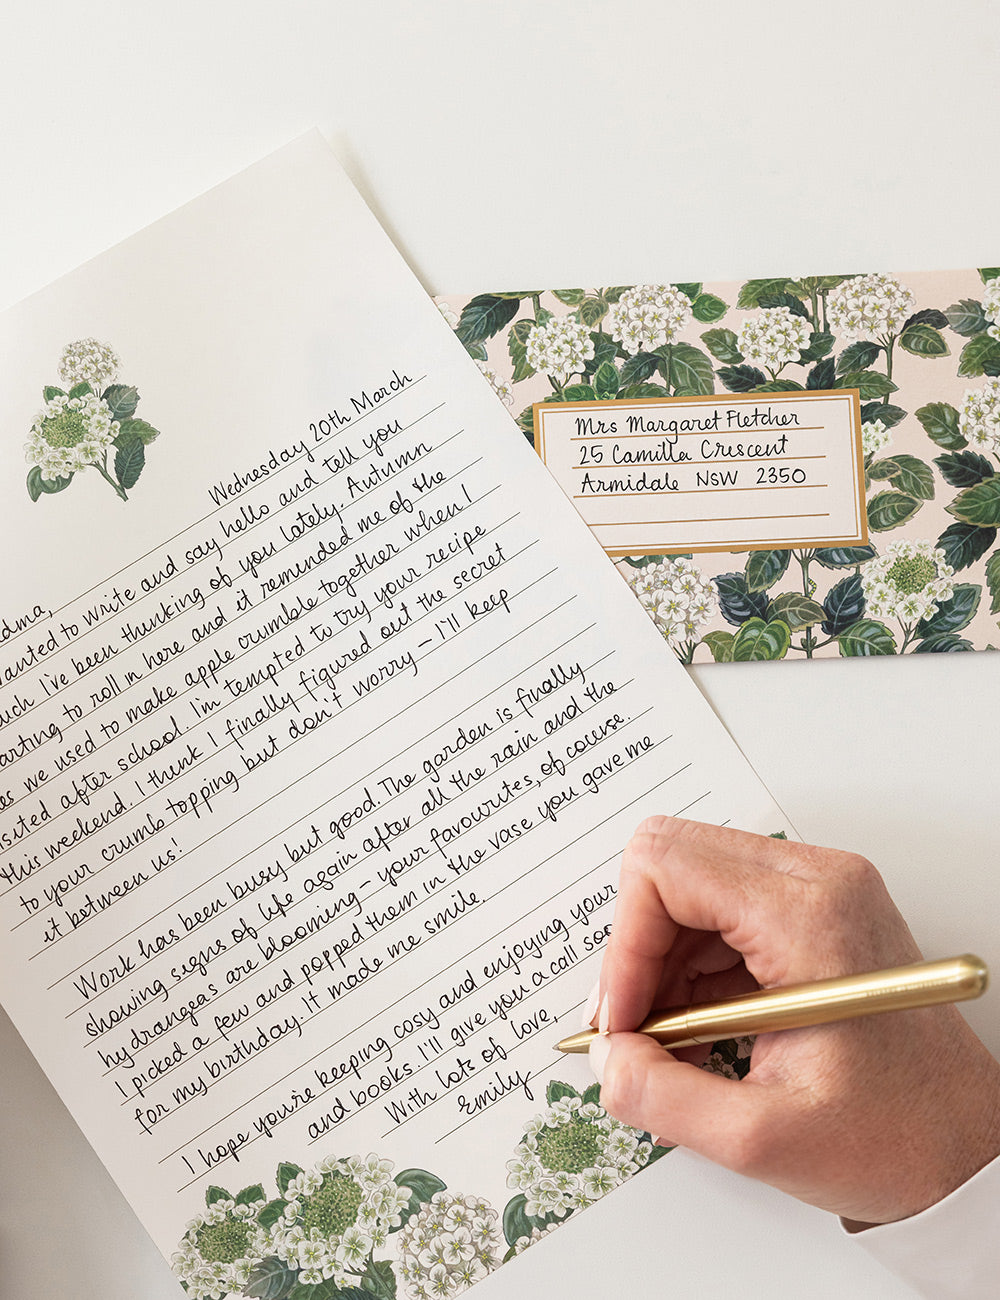 Wednesday 20th March
dma,
wanted to write and say hello and tell you
uch I've been thinking of you lately. Autumn
arting to roll in here and it reminded me of the
es we used to make apple crumble together when I
isited after school. I'm tempted to try your recipe
this weekend. I think I finally figured out the secret
to your crumb topping but don't worry – I'll keep
it between us!
Work has been busy but good. The garden is finally
showing signs of life again after all the rain and the
hydrangeas are blooming – your favourites, of course.
I picked a few and popped them in the vase you gave me
for my birthday. It made me smile.
I hope you're keeping cosy and enjoying your
and books. I'll give you a call soo
With lots of love,
Emily
Mrs Margaret Fletcher
25 Camilla Crescent
Armidale NSW 2350